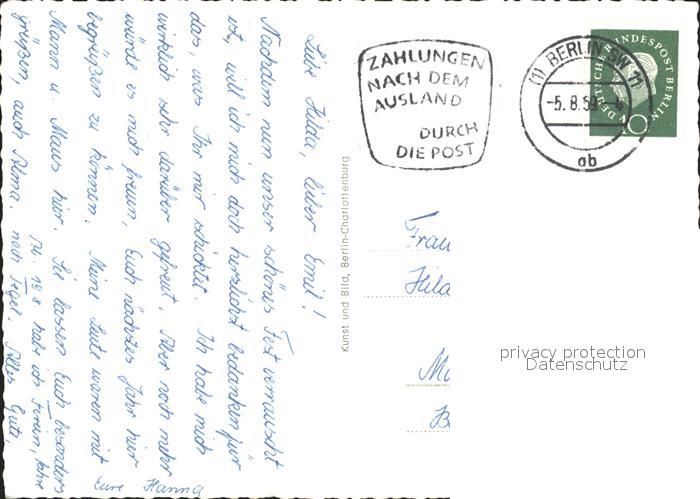 Liebe Hilda, lieber Emil!
Nachdem nun unser schönes Fest verrauscht
ist, will ich mich doch herzlichst bedanken für
das, was Ihr mir schicktet. Ich habe mich
wirklich sehr darüber gefreut. Aber noch mehr
würde es mich freuen, Euch nächstes Jahr hier
begrüßen zu können. Meine Leute waren mit
Mann u. Maus hier. Sie lassen Euch besonders
grüßen, auch Alma. nach Tegel. Alles Gute,
19.8 habe ich Ferien, fahre
Eure Hanna
Kunst und Bild, Berlin-Charlottenburg
ZAHLUNGEN
NACH DEM
AUSLAND
DURCH
DIE POST
(1) BERLIN SW 11
-5.8.59-
ab
DEUTSCHE BUNDESPOST BERLIN
10
Frau
Hilda
privacy protection
Datenschutz